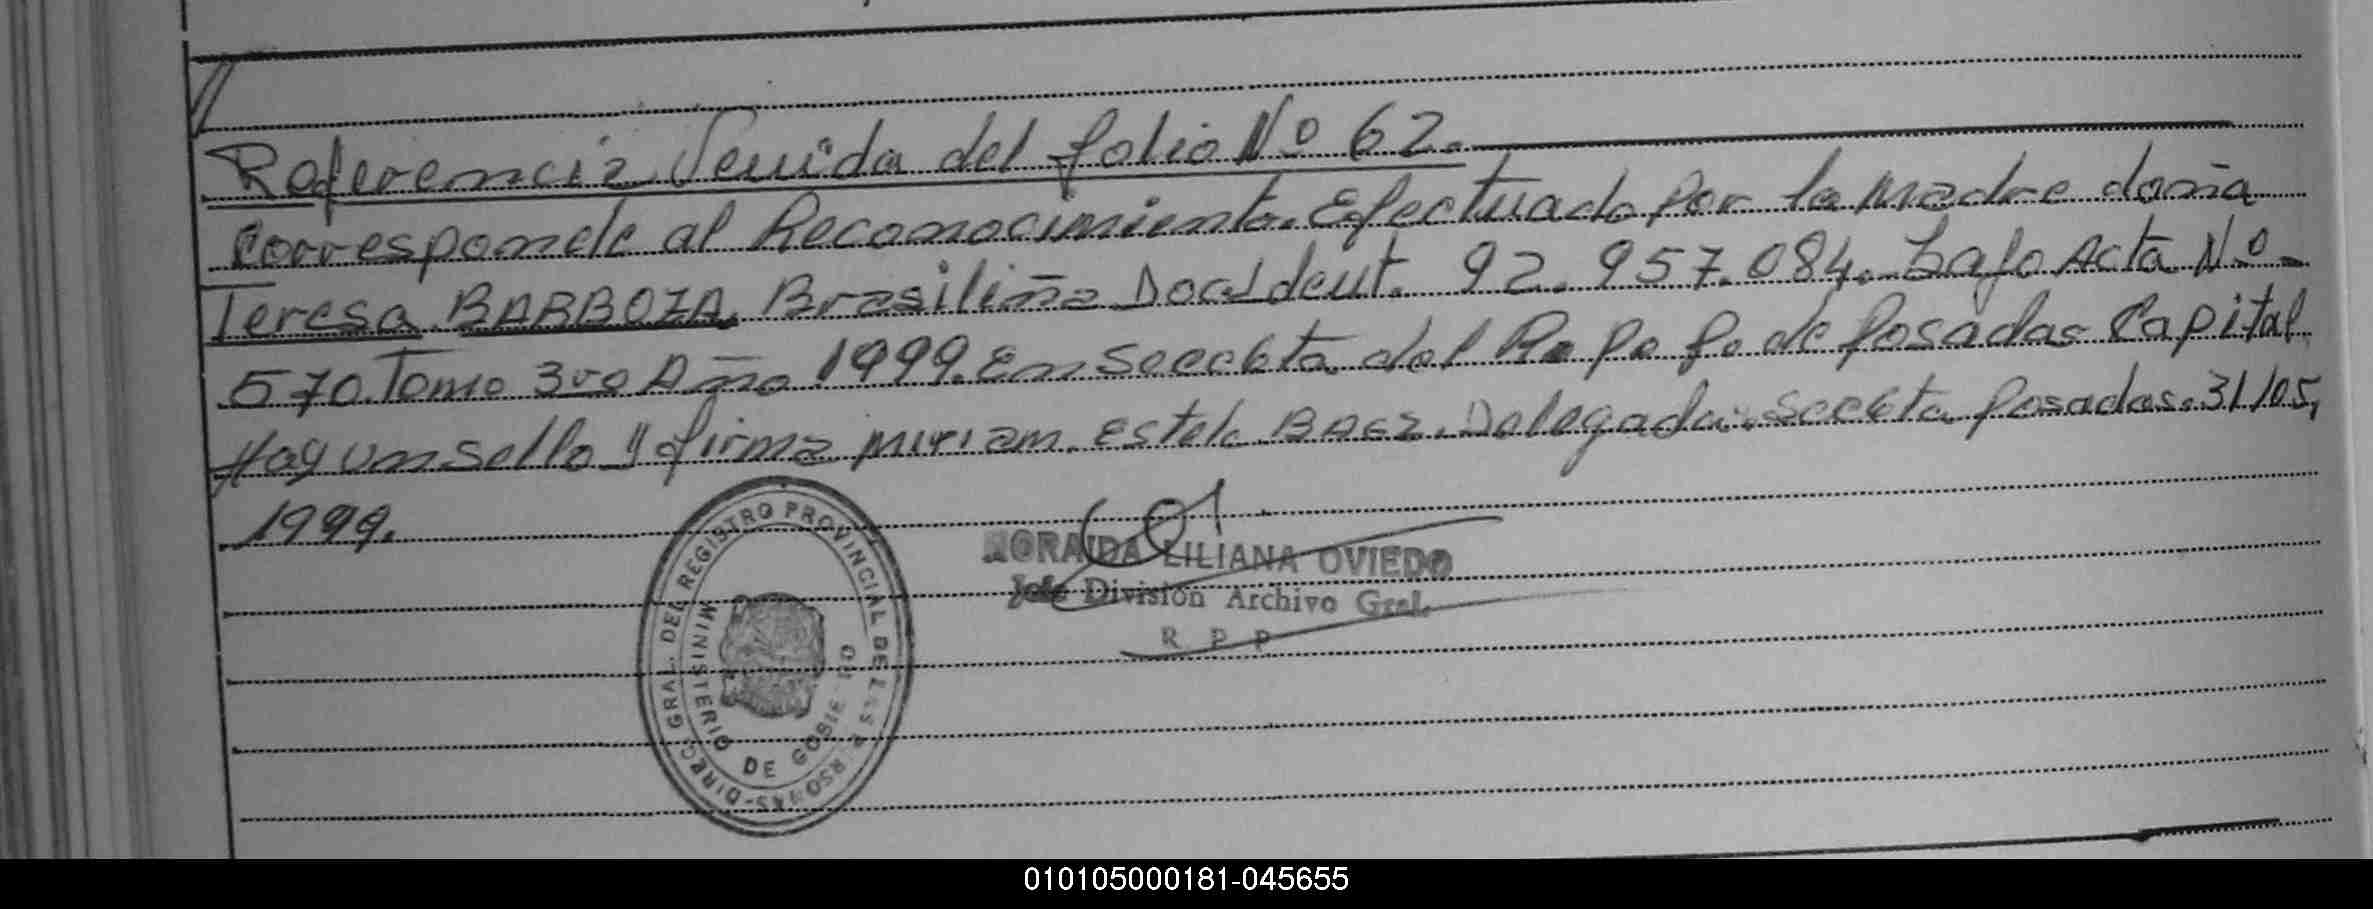 Referencia Venida del folio No 62.
Corresponde al Reconocimiento. Efectuado por la Madre doña
Teresa BARBOZA, Brasiliña Doc/Ident. 92.957.084. bajo Acta No
570. Tomo 3ro Año 1999. En Seccta. del R. P. P. de Posadas Capital
Hay un sello y firma Miriam. Estela BAEZ. Delegada. Seccta Posadas. 31/05,
1999.
DIRECC GRAL. DEL REGISTRO PROVINCIAL DE LAS PERSONAS
MINISTERIO DE GOBIERNO
LILIANA OVIEDO
Jefe División Archivo Gral.
R P P
010105000181-045655